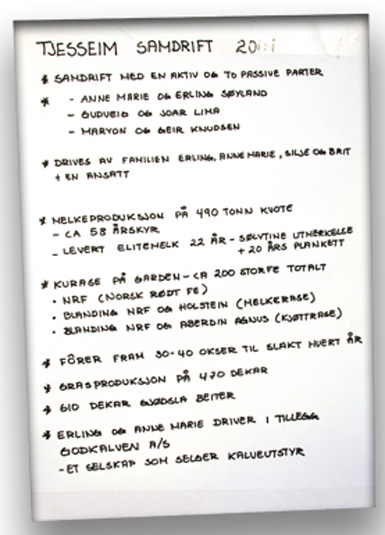 TJESSEIM SAMDRIFT
* SAMDRIFT MED EN AKTIV OG TO PASSIVE PARTER
* - ANNE MARIE OG ERLING SØYLAND
- GUDVEIG OG JOAR LIMA
- MARYON OG GEIR KNUDSEN
* DRIVES AV FAMILIEN ERLING, ANNE MARIE, SILJE OG BRIT
+ EN ANSATT
* MELKEPRODUKSJON PÅ 490 TONN KVOTE
- CA 58 ÅRSKYR
- LEVERT ELITEMELK 22 ÅR - SØLVTINE UTMERKELSE
+ 20 ÅRS PLANKETT
* KURASE PÅ GARDEN - CA 200 STORFE TOTALT
• NRF (NORSK RØDT FE)
• BLANDING NRF OG HOLSTEIN (MELKERASE)
• BLANDING NRF OG ABERDIN AGNUS (KJØTTRASE)
* FÔRER FRAM 30-40 OKSER TIL SLAKT HVERT ÅR
* GRASPRODUKSJON PÅ 470 DEKAR
* 610 DEKAR GJØDSLA BEITER
* ERLING OG ANNE MARIE DRIVER I TILLEGG
GODKALVEN A/S
- ET SELSKAP SOM SELGER KALVEUTSTYR